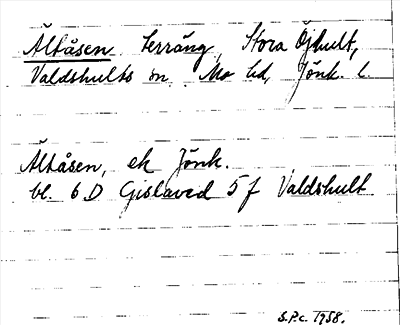 Ältåsen terräng, Stora Öjhult,
Valdshults sn Mo hd, Jönk. l.
Ältåsen, ek Jönk.
bl. 6 D Gislaved 5 f Valdshult
S.P.c. 1958.